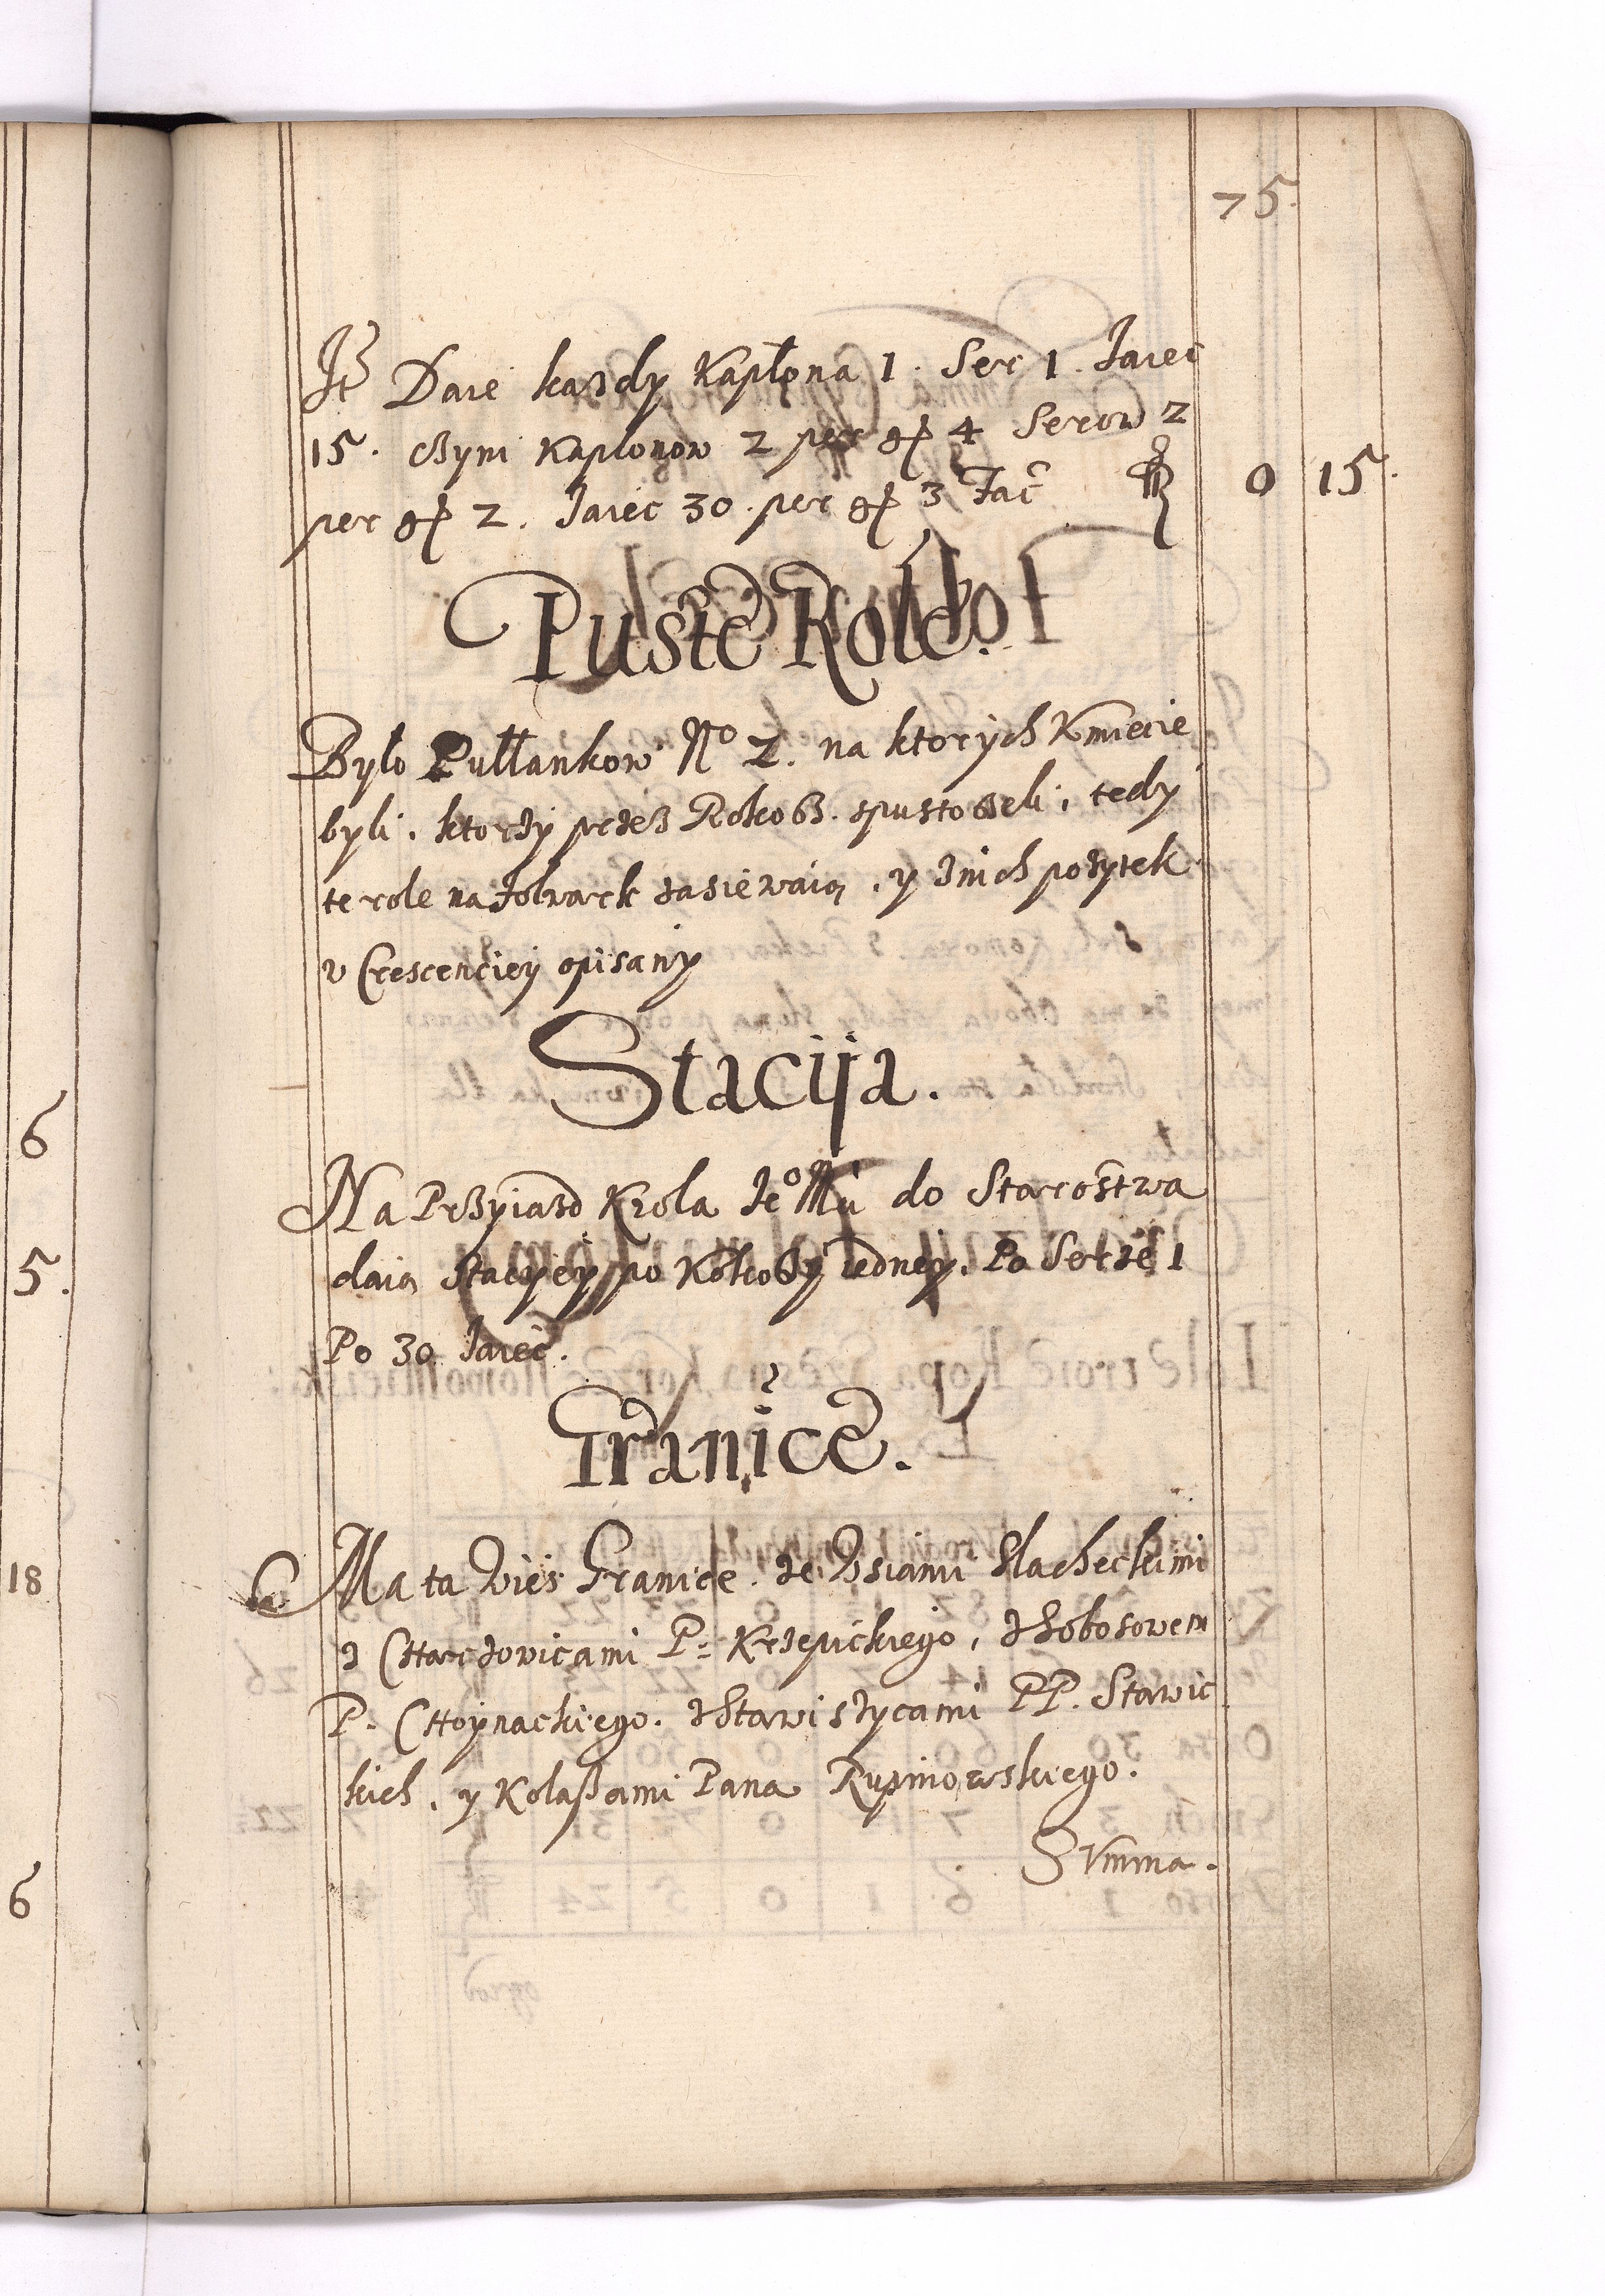 75.
It Daie kazdy Kapłona 1. Ser 1. Jaiec
15. czyni Kapłonow 2 per gl 4 Serow 2
per gl 2. Jaiec 30. per gl 3 Fac 0 15.
Puste Role.
Było Pułłankow No 2. na ktorych Kmiecie
byli. ktorzy przez Rokosz. spustoszeli, tedy
te role na folwark zasiewaią, y znich pozytek
v Crescenciey opisany
Stacija.
Na Przyiazd Krola Jeo Mci do Starostwa
daią Stacyiey po Kokoszy iedney. Po Serze 1
Po 30 Jaiec.
Granice.
Ma ta Wies Granice. ze Wsiami Slacheckimi
z Charzowicami P: Krzepickiego, z
P. Choynackiego. z Stawiszycami PP. Stawic
kich, y Kolaßami Pana Rupniowskiego.
Summa.
6
5.
18
6